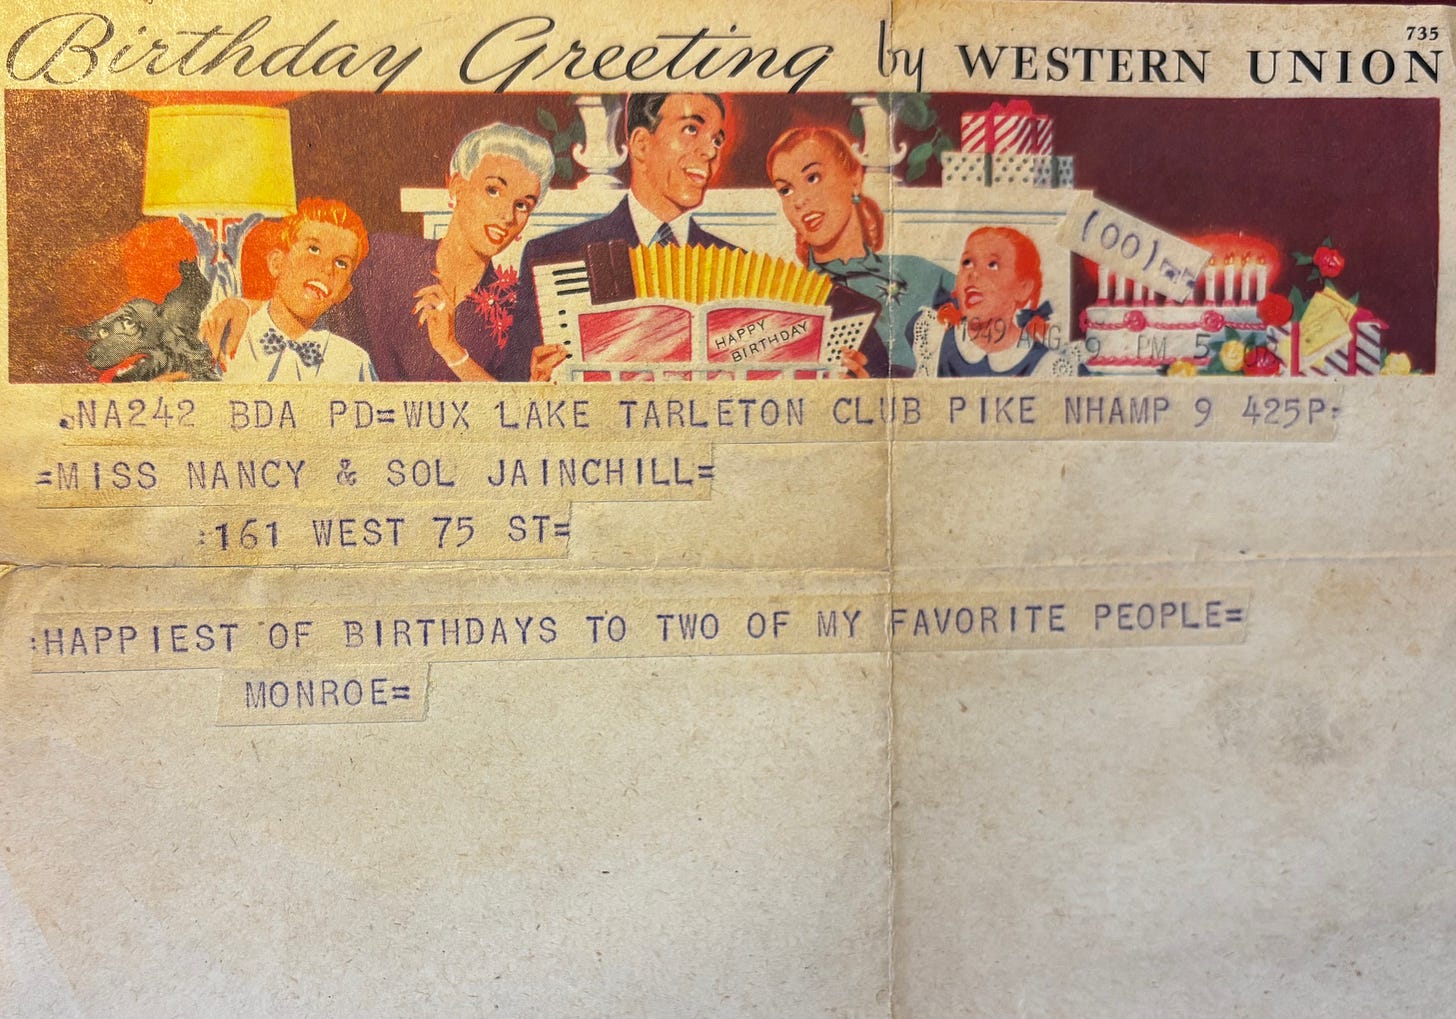 735
Birthday Greeting by WESTERN UNION
HAPPY
BIRTHDAY
(00)
1949 AUG 9 PM 5
NA242 BDA PD=WUX LAKE TARLETON CLUB PIKE NHAMP 9 425P=
=MISS NANCY & SOL JAINCHILL=
:161 WEST 75 ST=
:HAPPIEST OF BIRTHDAYS TO TWO OF MY FAVORITE PEOPLE=
MONROE=